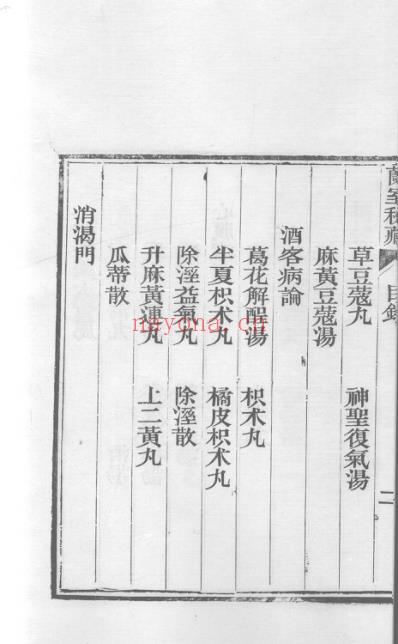 蘭室秘藏 目錄 二
草豆蔻丸 神聖復氣湯
麻黃豆蔻湯
酒客病論
葛花解酲湯 枳朮丸
半夏枳朮丸 橘皮枳朮丸
除溼益氣丸 除溼散
升麻黃連丸 上二黃丸
瓜蒂散
消渴門
nayona.cn